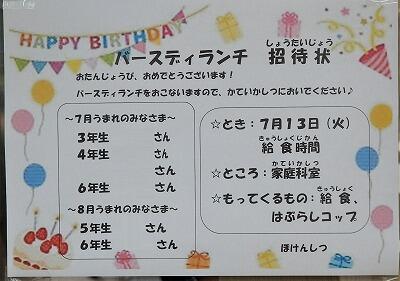 HAPPY BIRTHDAY
バースディランチ 招待状
しょうたいじょう
おたんじょうび、おめでとうございます!
バースディランチをおこないますので、かていかしつにおいでください♪
～7月うまれのみなさま～
3年生 さん
4年生 さん
さん
6年生 さん
～8月うまれのみなさま～
5年生 さん
6年生 さん
☆とき:7月13日(火)
きゅうしょくじかん
給食時間
かていかしつ
☆ところ:家庭科室
きゅうしょく
☆もってくるもの:給食、
はぶらしコップ
ほけんしつ